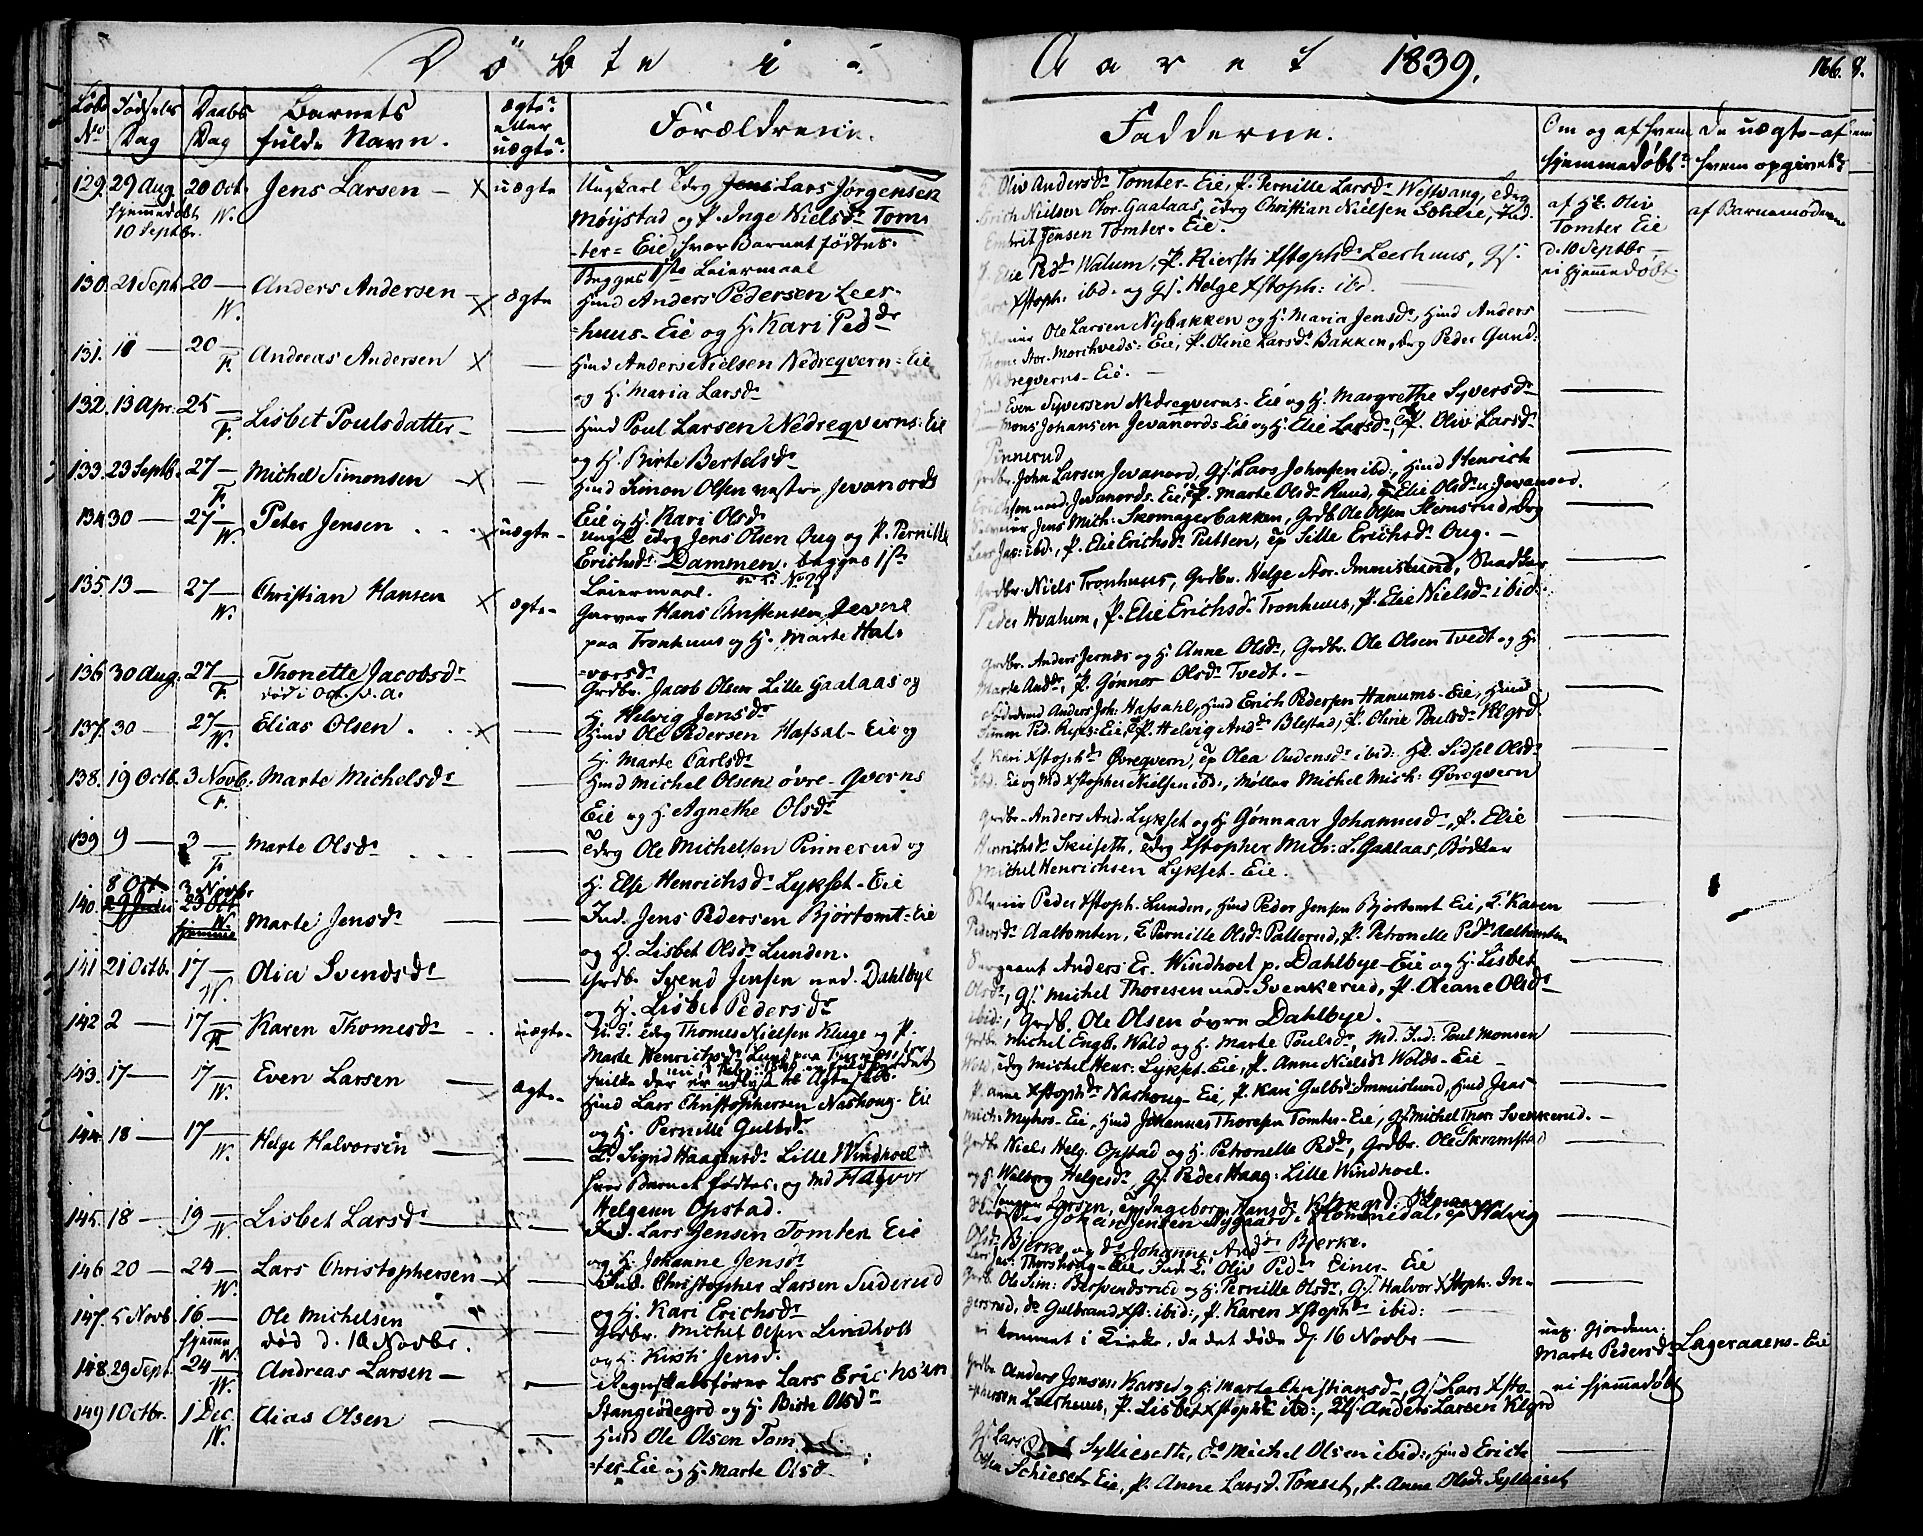 Döbte i Aaret 1839.
166. 8.
Löbe No Födsels Dag Daabs Dag Barnets fulde Navn. ægte? eller uægte? Forældrene. Fadderne. Om og af hvem hjemmedøbt? De uægte - af hvem opgivet?
129. 29 Aug. 20 Oct. Jens Larsen – X uægte Ungkarl Edrg Lars Jörgensen
hjemmedöbt W. Möystad og P. Inge Nielsdr Tom-
10 Septbr. -ter-Eie, hvor Barnet födtes.
Begges 1ste Leiermaal
Oliv Andersdr Tomter-Eie, P. Pernille Larsdr Westvang, Edrg
Erich Nielsen Stor-Gaalaas, Edrg Christian Nielsen Sohlie, Ind.
Embrit Jensen Tomter-Eie.
af H. Oliv
Tomter Eie
d. 10 Septbr –
af Barnemoderen
130. 21 Sept. 20 – Anders Andersen – X ægte Hmd Anders Pedersen Leer-
W. huus-Eie og H. Kari Peddr
Elie Pedr Walum, P. Kiersti Xstophdr Leerhuus, Gs.
Xstoph: ibd. og Gs. Helge Xstoph: ibd.
ei hjemmedøbt
131. 11 – 20 – F. Andreas Andersen X – Hmd Anders Nielsen Nedreqvern-Eie
og H. Maria Larsdr
Ole Larsen Nybakken og H. Maria Jensdr, Hmd Anders
Thom: Stor-Morchveds-Eie, P. Oline Larsdr Bakken, Edrg Peder Gund:
Nedreqverns-Eie. –
132. 13 Apr. 25 – F. Lisbet Poulsdatter – – Hmd Poul Larsen Nedreqverns-Eie
og H. Birte Bertelsdr
Hmd Even Syversen Nedreqverns-Eie og H. Margrethe Syversdr
Mons Johansen Jevanords-Eie og H. Elie Larsdr, P. Oliv Larsdr
Pinnerud
133. 23 Septb. 27 – F. Michel Simonsen X – Hmd Simon Olsen vestre Jevanords
Eie og H. Kari Olsdr
Grdbr John Larsen Jevanord, Gs. Lars Johnsen ibid:, Hmd Henrich
Erichsen nord Jevanords-Eie, P. Marte Olsdr Ruud, Elie Olsdr n. Jevanord.
134. 30 – 27 – W. Peter Jensen . . . X uægte – Ungk. Edrg Jens Olsen Oug og P. Pernille
Erichsdr Dammen, begges 1ste
Leiermaal.
Jens Mich: Skomagerbakken, Grdb. Ole Olsen Stemsrud, Edrg
Lars Jac: ibd., P. Elie Erichsdr Putten, ep Sille Erichsdr Oug. –
135. 13 – 27 – W. Christian Hansen X ægte – Garver Hans Christensen Jevne
paa Tronhuus og H. Marte Hal-
-vorsdr
Grdbr. Niels Tronhuus, Grdbr. Helge Stor-Immislund, Snedker
Peder Hvalum, P. Elie Erichsdr Tronhuus, P. Elie Nielsdr ibid:
136. 30 Aug. 27 – F. Thonette Jacobsdr – Grdbr. Jacob Olsen Lille Gaalaas og
död i Oct. s. a. H. Helvig Jensdr
Grdbr. Anders Jernæs og H. Anne Olsdr, Grdbr. Ole Olsen Tvedt og H.
Marte Anddr, P. Gönnor Olsdr Tvedt. –
137. 30 – 27 – W. Elias Olsen . . X – Hmd Ole Pedersen Hafsal-Eie og
H. Marte Carlsdr
Anders Joh: Hafsahl, Hmd Erich Pedersen Hanums-Eie, Hmd
Simon Ped. Eie, P. Helvig Andr Blestad, P. Oline Poulsdr Klgrd
138. 19 Octb. 3 Novb. F. Marte Michelsdr – Hmd Michel Olsen övre-Qverns
Eie og H. Agnethe Olsdr
Kari Xstophdr Övreqvern, ep Olea Audensdr ibid: Hl. Sidsel Olsdr
Eie og Md Xstopher Nielsen ibd:, Möller Michel Mich: Övreqvern
139. 9 – 3 – F. Marte Olsdr . . . – Edrg Ole Michelsen Pinnerud og
H. Else Henrichsdr Lykset-Eie
Grdbr. Anders And. Lykset og H. Gönnaar Johannesdr, P. Elie
Henrichsdr Skiseth, Edrg Xstopher Mich: L. Gaalaas, Bödker
Michel Henrichsen Lykset-Eie.
140. 8 Oct 3 Novbr W. Marte Jensdr – – Ind. Jens Pedersen Bjørtomt-Eie
og H. Lisbet Olsdr Lunden.
Peder Xstoph. Lunden, Hmd Peder Jensen Bjortomt Eie, E. Karen
Pedersdr Aaltomten, E Pernille Olsdr Pallerud, P. Petronelle Peddr Aaltomten
141. 21 Octb. 17 – W. Olia Svendsdr – Grdb. Svend Jensen ned. Dahlbye
og H. Lisbet Pedersdr
Sergeant Anders Er. Windhoel p. Dahlbye-Eie og H. Lisbet
Olsdr, Gs. Michel Thoresen ned. Svenkerud, P. Oleane Olsdr
ibid:, Grdb. Ole Olsen övre Dahlbye.
142. 2 – 17 – F. Karen Thomesdr . . uægte – U. S. Edrg Thomes Nielsen Kluge og P.
Marte Henrichsdr Lund paa
hvilke der er udlyst til Ægteskab.
Grdbr. Michel Engb. Wold og H. Marte Poulsdr, Md. Ind: Poul Monsen
Wold, Edrg Michel Henr: Lykset-Eie, P. Anne Nielsdr Wolds-Eie –
143. 17 – 17 – W. Even Larsen – ægte – Hmd Lars Christophersen Nashoug-Eie
og H. Pernille Gulbdr
P. Anne Xstophdr Nashoug-Eie, P. Kari Gulbd: Immislund, Hmd Jens
Mich: Myhrs-Eie, Hmd Johannes Thoresen Tomter-Eie, Gs. Michel Thor: Svenkerud. –
144. 18 – 17 – W. Helge Halvorsen – – E. Sigrid Haagensdr Lille Windhoel
hvor Barnet födtes, og Md Halvor
Helgesen Opstad.
Grdbr Niels Helg. Opstad og H. Petronelle Peddr, Grdbr. Ole Skramstad
og H. Walborg Helgesdr, Gs. Peder Haag: Lille Windhoel.
145. 18 – 19 – W. Lisbet Larsdr – – Ind. Lars Jensen Tomten Eie
og H. Johanne Jensdr
Larsen, ep Ingeborg Hansdr
Johan Jensen Nygaard, ep Helvig
Olsdr Bjerke og do Johanne Anddr Bjerke.
146. 20 – 24 – W. Lars Christophersen – X – Ind. Christopher Larsen Suderud
og H. Kari Erichsdr
Jac: Thorshoug-Eie, Ind. E. Oliv Pedr Einer-Eie
Grdb. Ole Sim: Berpendsrud og H. Pernille Olsdr, Gs. Halvor Xstoph. In-
gersrud, do Gulbrand Xst: ibid:, P. Karen Xstophdr ibid:
147. 5 Novb 16 – Ole Michelsen – X – Grdbr. Michel Olsen Lindholt
hjemme W. död d. 16 Novbr. og H. Kirsti Jensd.
ei kommet i Kirke, da det döde d. 16 Novbr –
Gjordem:
Marte Pedersdr Lageraaens-Eie
148. 29 Sept. 24 – W. Andreas Larsen – X – Regnskabsförer Lars Erichsen
Stangeödegrd og H. Birte Olsdr
Grdbr Anders Jensen Karset og H. Marte Christiansdr, Gs. Lars Xsto-
phersen Leerhuus, P. Lisbet Xstophdr ibd:, Anders Larsen Klgrd
ei hjemmedöbt
149. 1 Octbr. 1 Dec. W. Elias Olsen – X – Hmd Ole Olsen Tom
-ter-Eie og H. Marte Olsd.
Gs. Lars Sylliesetts, do Michel Olsen ibid:, Hmd Erich
Olsen Schieset-Eie, P. Anne Larsd. Tonset, P. Anne Olsdr Syllieset